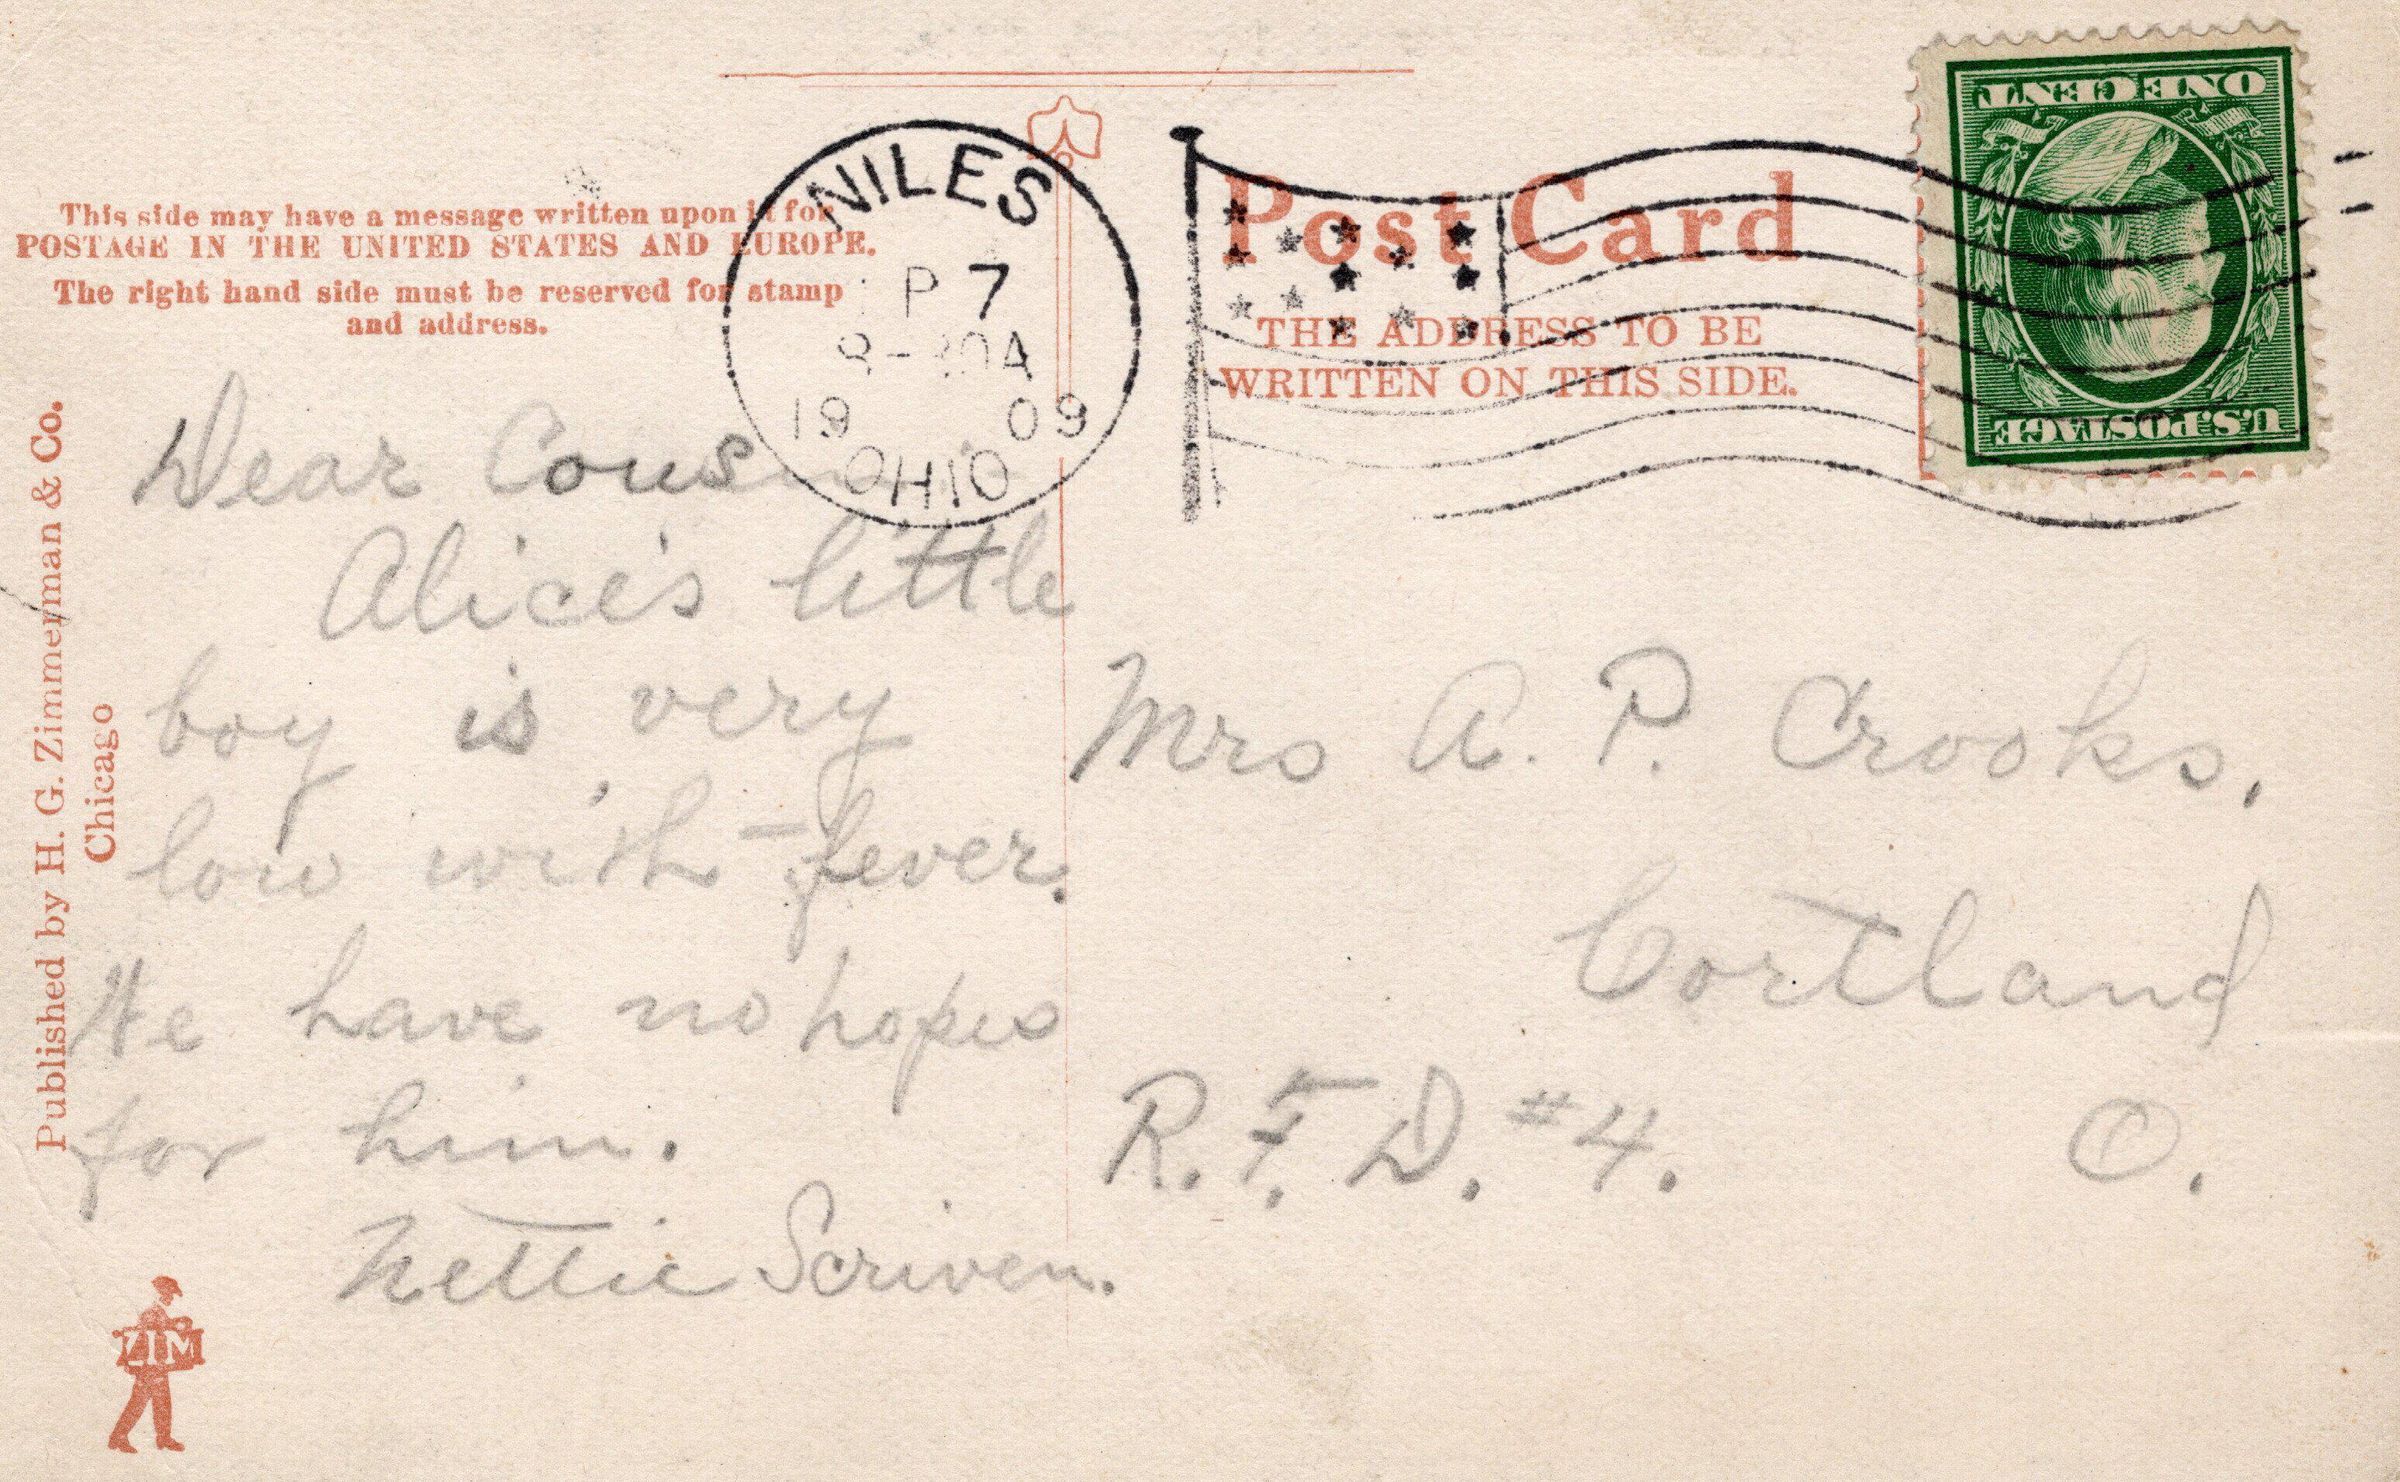 This side may have a message written upon it for
POSTAGE IN THE UNITED STATES AND EUROPE.
The right hand side must be reserved for stamp
and address.
NILES
P 7
8-30A
19 09
OHIO
Post Card
THE ADDRESS TO BE
WRITTEN ON THIS SIDE.
ONE CENT
U.S. POSTAGE
Published by H. G. Zimmerman & Co.
Chicago
Dear Cousin
Alice's little
boy is very
low with fever.
We have no hopes
for him.
Nettie Scriven.
Mrs A. P. Crooks,
Cortland
R. F. D. #4. O.
ZIM